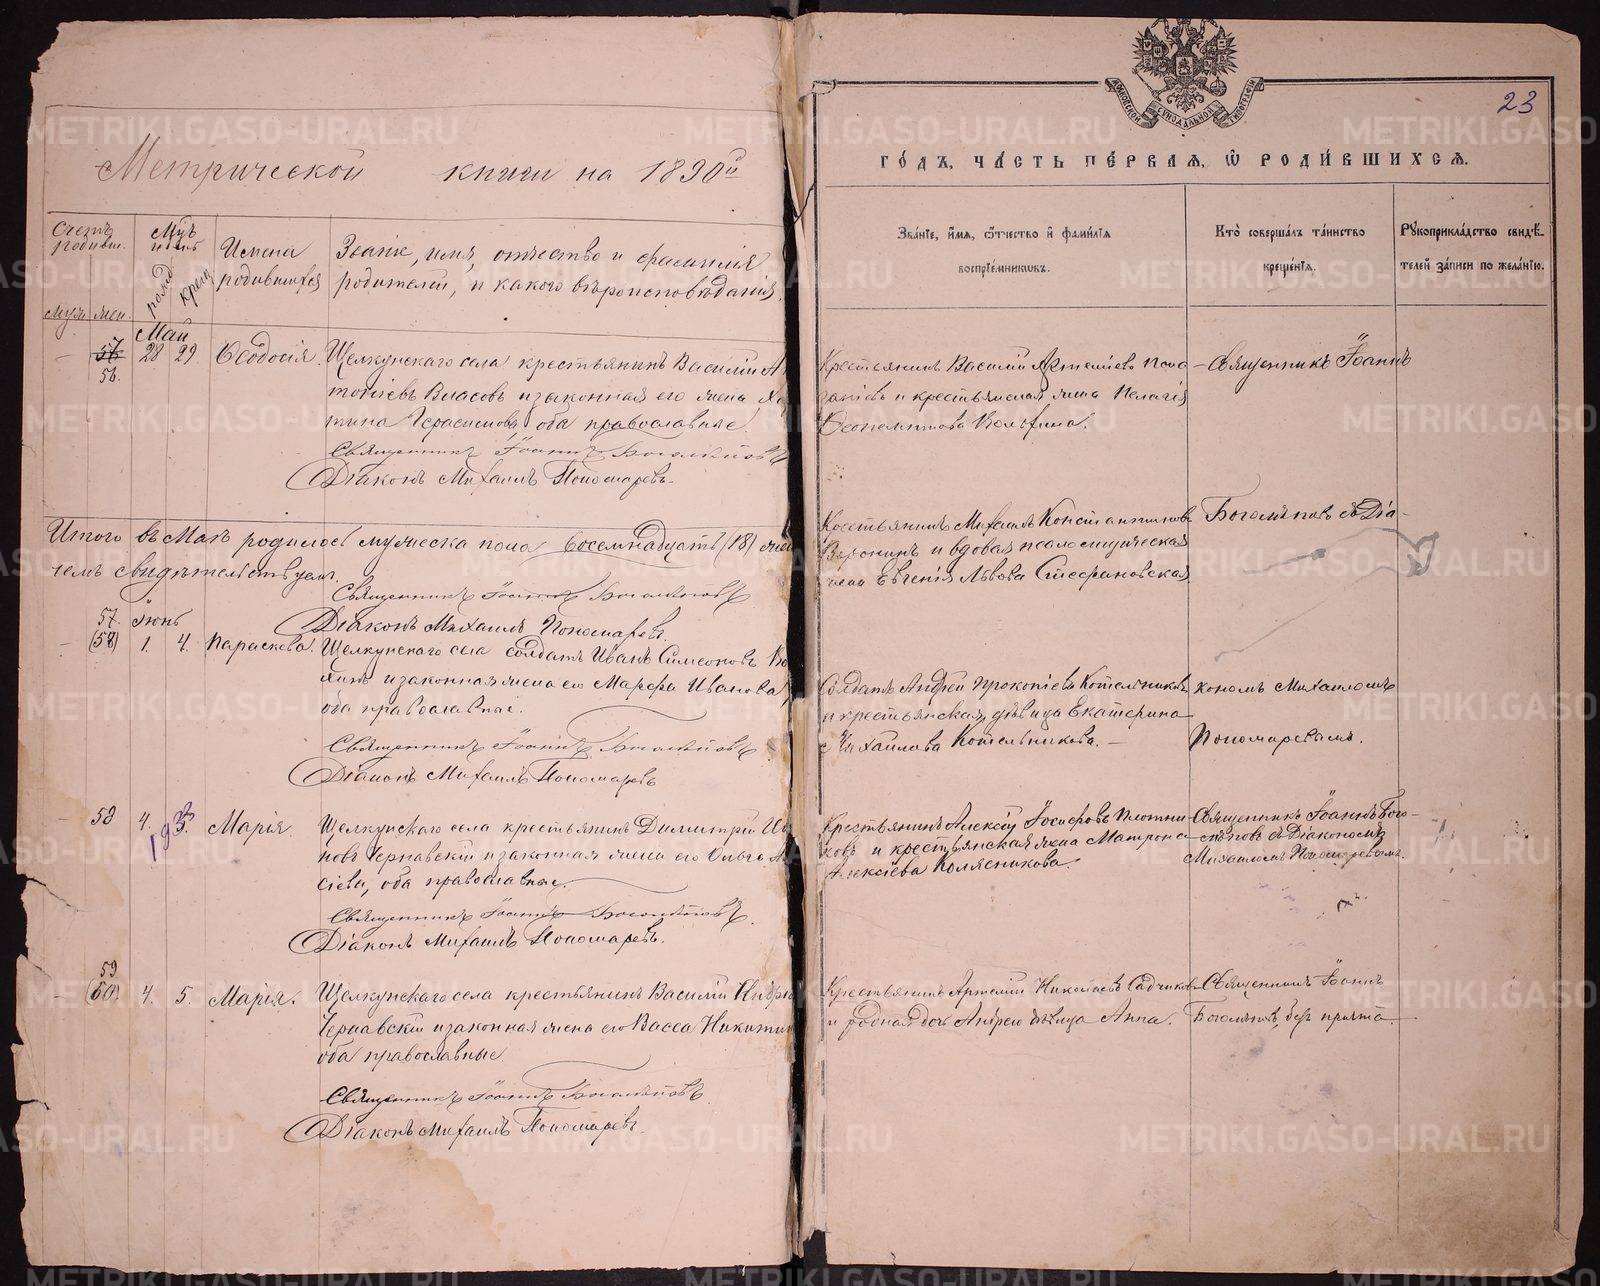 Метрической книги на 1890й
Счетъ родивш.
муж. жен.
Мѣс. и день
рожд. крещ.
Имена родившихся
Званіе, имя, отчество и фамилія
родителей, и какого вѣроисповѣданія.
Май
57
56.
28 29. Ѳеодосія. Щелкунскаго села крестьянинъ Василій Ан
тоніевъ Власовъ и законная его жена
Герасимова, оба православные.
Священникъ Іоаннъ Богомѣповъ
Діаконъ Михаилъ Пономаревъ.
Итого въ Маѣ родилось мужеска пола восемнадцать (18)
чемъ свидѣтельствуемъ.
Священникъ Іоаннъ Богомѣповъ
Діаконъ Михаилъ Пономаревъ.
57. Іюнь
(58) 1. 4. Параскева. Щелкунскаго села солдатъ Иванъ Симеоновъ
и законная жена его Марѳа Иванова,
оба православные.
Священникъ Іоаннъ Богомѣповъ
Діаконъ Михаилъ Пономаревъ
58 4. 5. Марія. Щелкунскаго села крестьянинъ Димитрій Ив
новъ Чернавскій и законная жена его Ольга А
сіева, оба православные.
Священникъ Іоаннъ Богомѣповъ.
Діаконъ Михаилъ Пономаревъ.
59
(60) 4. 5. Марія. Щелкунскаго села крестьянинъ Василій Андре
Чернавскій и законная жена его Васса Никитин
оба православные
Священникъ Іоаннъ Богомѣповъ
Діаконъ Михаилъ Пономаревъ.
23
МОСКОВСКОЙ СѴНОДАЛЬНОЙ ТИПОГРАФІИ
ГО́ДЪ, ЧА́СТЬ ПЕ́РВАЯ, Ѡ҆ РОДИ́ВШИХСѦ.
Зва́нїе, и҆́мѧ, ѻ҆́тчество и҆ фамѝлїѧ
воспрїе́мникѡвъ.
Кто̀ соверша́лъ та́инство
креще́нїѧ.
Рꙋкоприкла́дство свидѣ́-
телей за́писи по жела́нїю.
Крестьянинъ Василій Артеміевъ
и крестьянская жена Пелагія
Священникъ Іоаннъ
Крестьянинъ Михаилъ Константиновъ
Воронинъ и вдовая псаломщическая
жена Евгенія Львова Стефановская.
Богомѣповъ съ Діа-
Солдатъ Андрей Прокопіевъ Котельниковъ
и крестьянская дѣвица Екатерина
Михаилова Котельникова.
кономъ Михаиломъ
Пономаревымъ.
Крестьянинъ Алексій Іосифовъ Плотни-
ковъ и крестьянская жена Матрона
Алексіева Колясникова.
Священникъ Іоаннъ Бого-
мѣповъ съ Діакономъ
Михаиломъ Пономаревымъ.
Крестьянинъ Артемій Николаевъ Садчиковъ
и родная дочь Андрею дѣвица Анна.
Священникъ Іоаннъ
Богомѣповъ, безъ причта.
METRIKI.GASO-URAL.RU